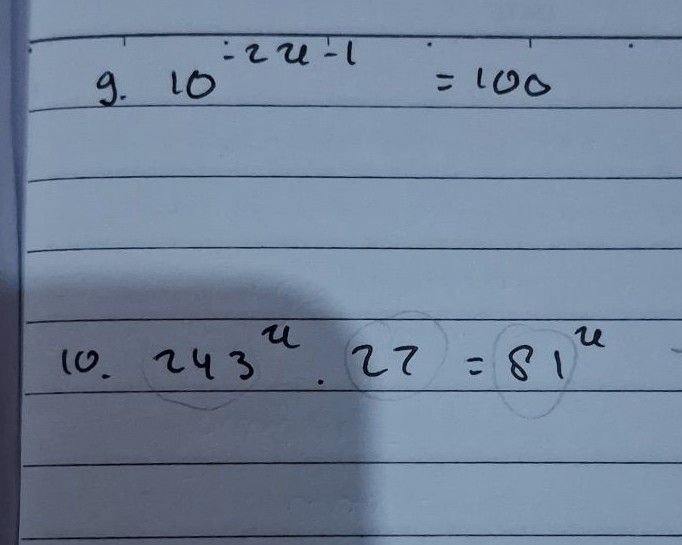 9. 10^{-2x-1} = 100
10. 243^x . 27 = 81^x